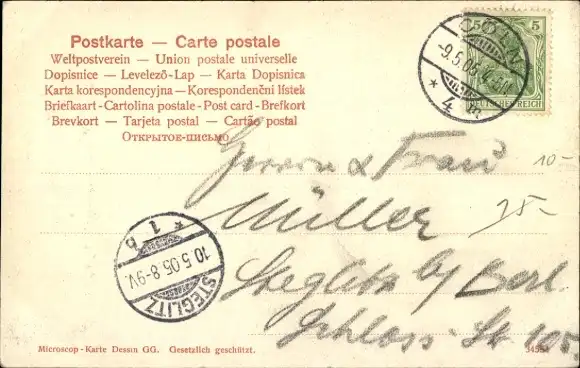 Postkarte — Carte postale
Weltpostverein — Union postale universelle
Dopisnice — Levelező-Lap — Karta Dopisnica
Karta korespondencyjna — Korespondenční lístek
Briefkaart - Cartolina postale - Post card - Brefkort
Brevkort — Tarjeta postal — Cartão postal
ОТКРЫТОЕ ПИСЬМО
5 5
DEUTSCHES REICH
CÖLN
-9.5.05.
* 4 m
Herrn & Frau
10-
Müller
75-
Steglitz b/ Berl.
Schloss-St 105
* 1 b
10.5.05.8-9V.
STEGLITZ
Microscop - Karte Dessin GG. Gesetzlich geschützt.